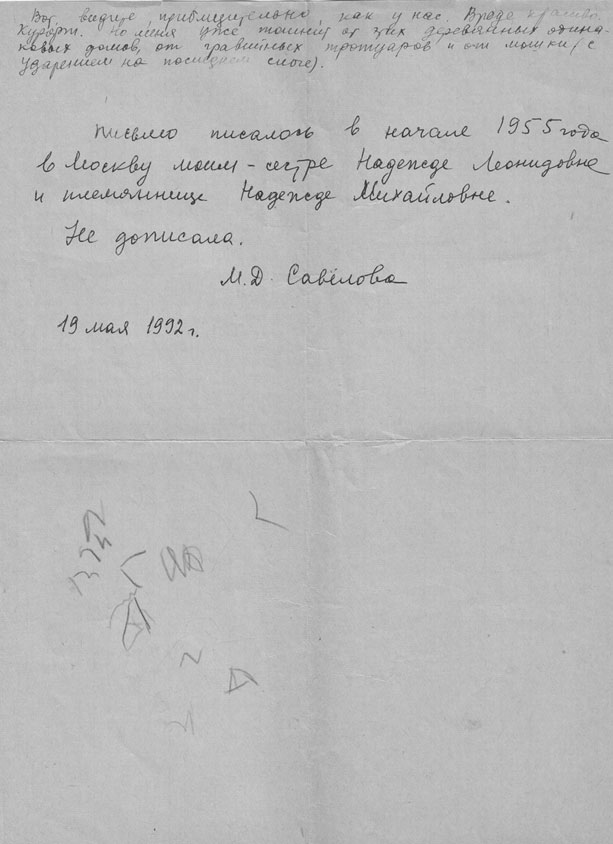 Вот видите, приблизительно, как у нас. Вроде красиво.
Курорт. Но меня уже тошнит от этих деревянных одина-
ковых домов, от гравийных тротуаров и от мошки (с
ударением на последнем слоге).
Письмо писалось в начале 1955 года
в Москву моим - сестре Надежде Леонидовне
и племяннице Надежде Михайловне.
Не дописала.
М.Д. Савёлова
19 мая 1992 г.